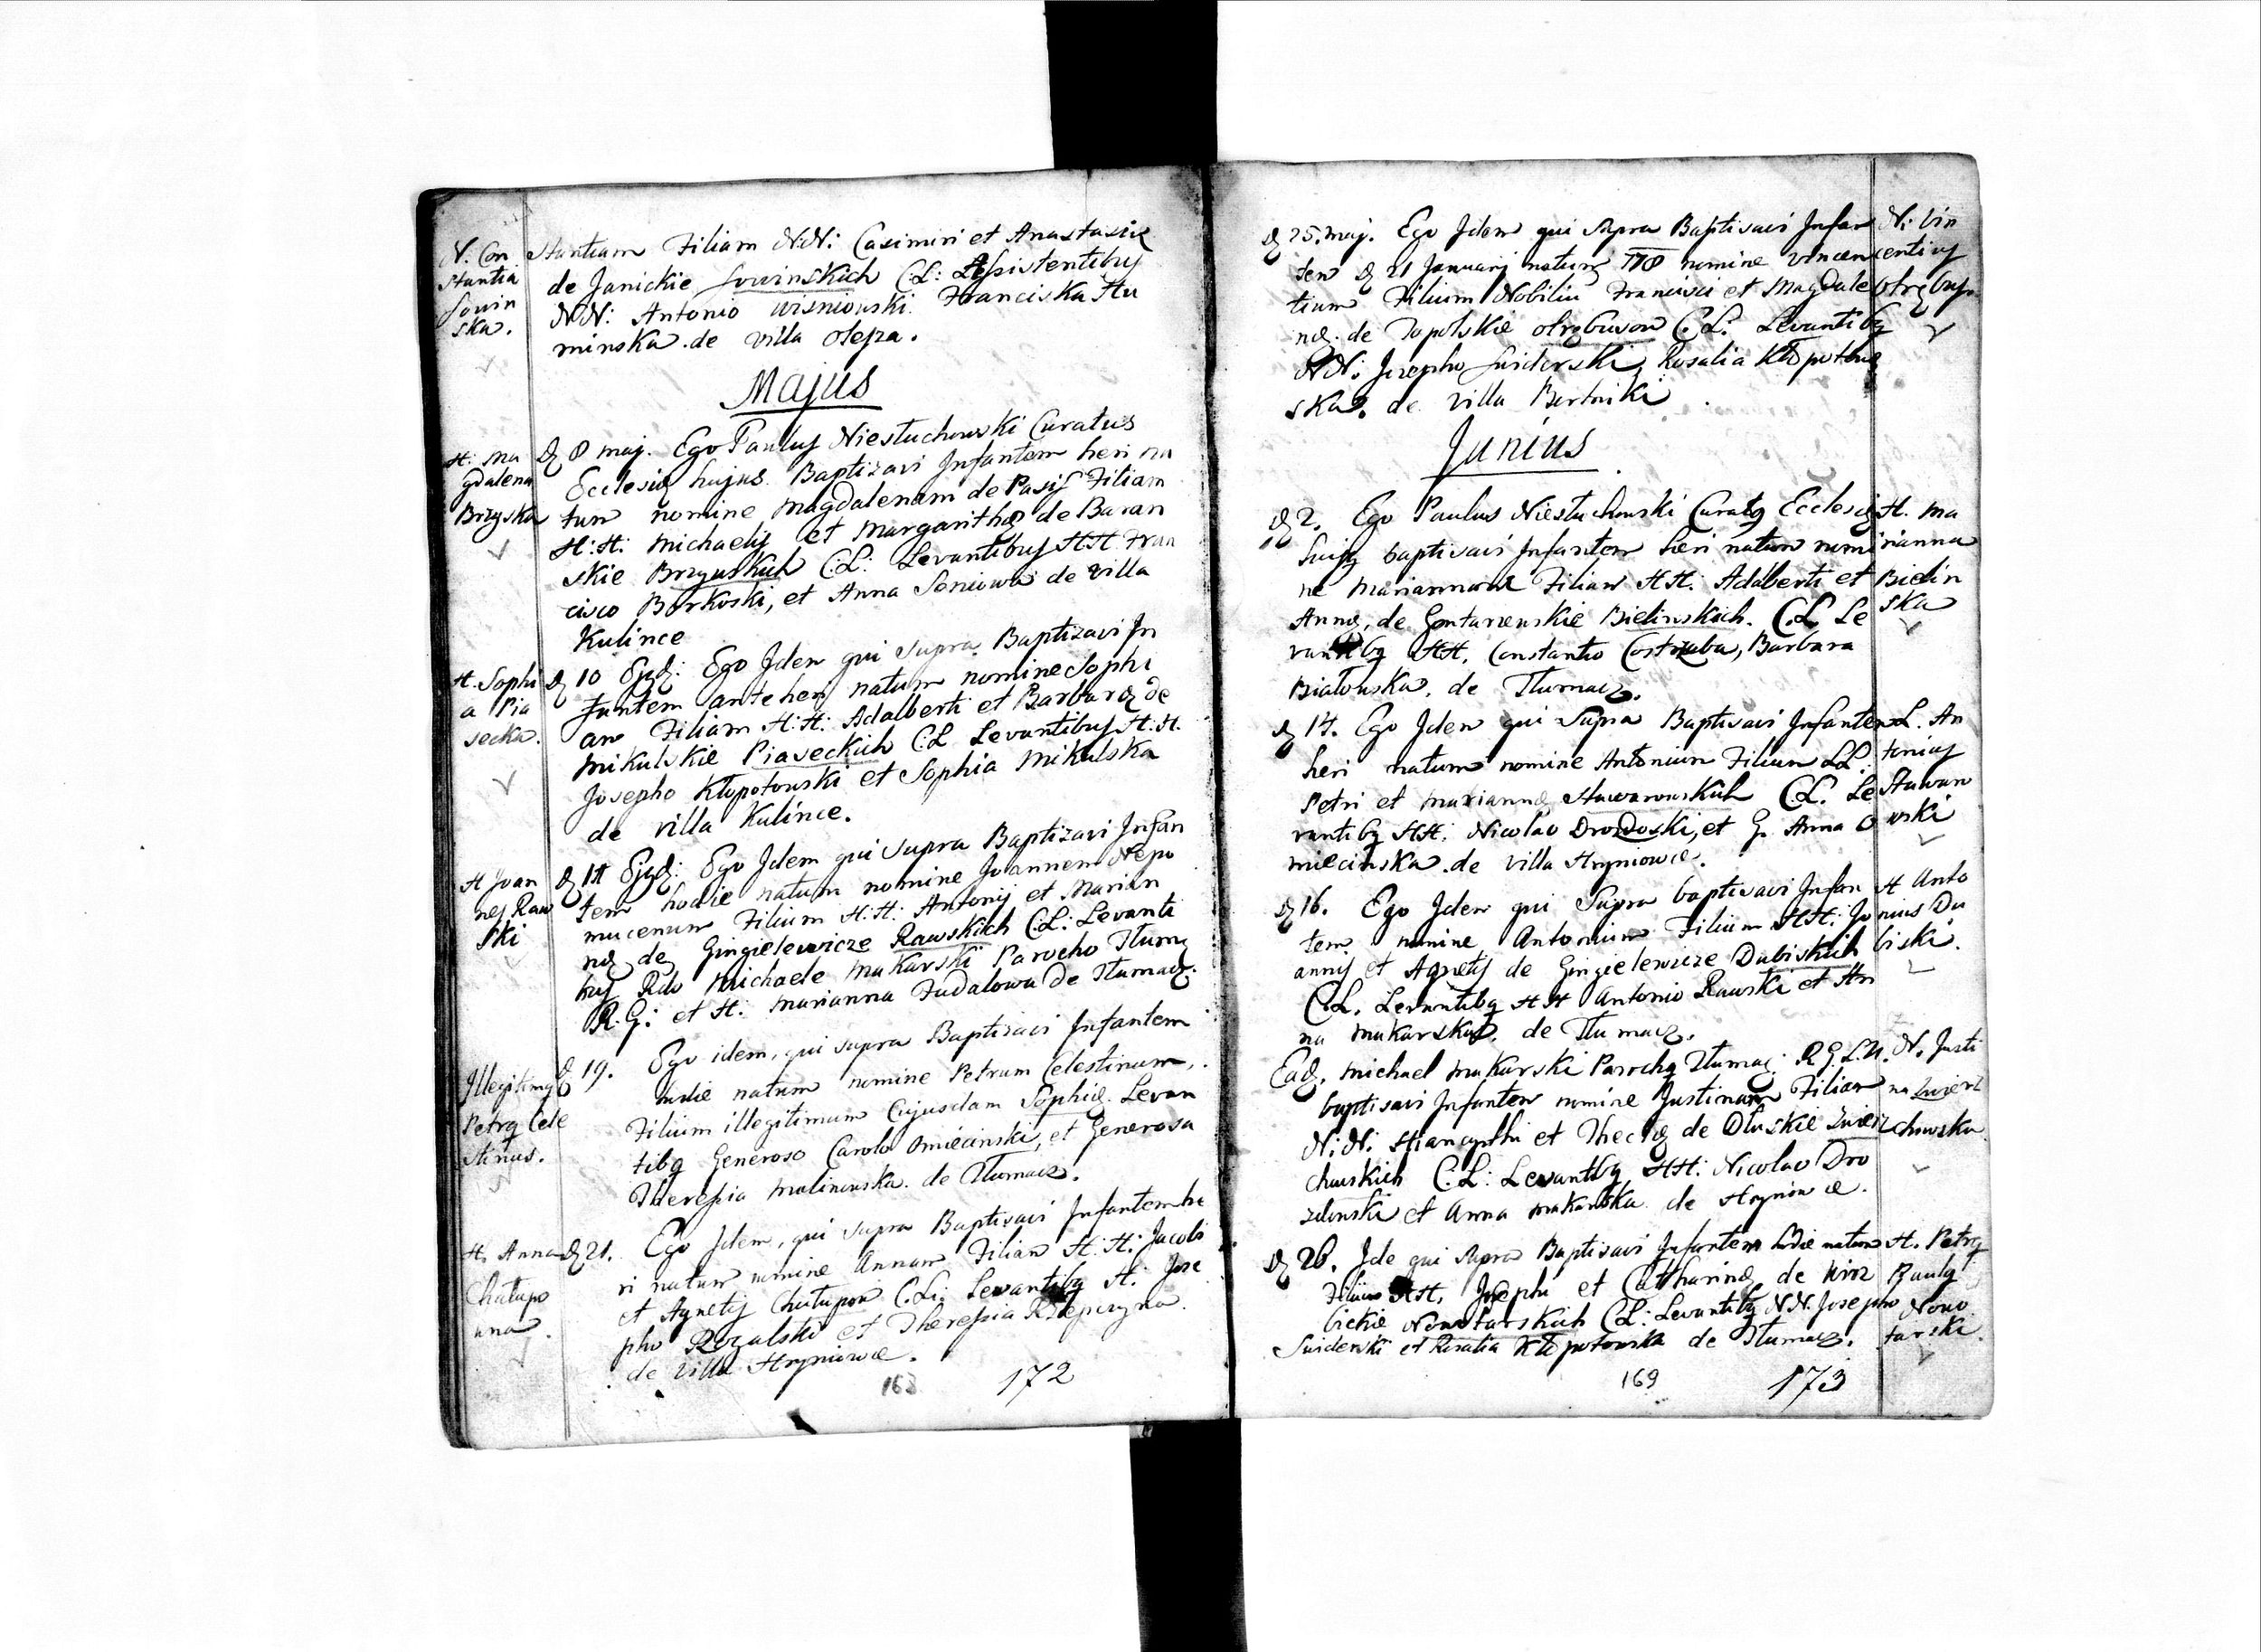 N. Con
stantia
Sowin
ska.
stantiam Filiam N.N: Casimiri et Anastasiæ
de Janickie Sowinskich C:L: Assistentibus
NN: Antonio Wisniowski Franciska Stu
minska de villa Olesza.
Majus
H: Ma
gdalena
Brzyska
D 8 maj. Ego Paulus Niestuchowski Curatus
Ecclesiæ hujus Baptizavi Infantem heri na
tum nomine Magdalenam de Pasis Filiam
H:H: Michaelis et Margarithæ de Baran
skie Brzyuskich C:L: Levantibus HH Fran
cisco Borkoski, et Anna Seniowa de villa
Kulince
H. Sophi
a Pia
secka.
D 10 Ejqd: Ego Idem qui supra Baptizavi In
fantem ante heri natum nomine Sophi
am Filiam H:H: Adalberti et Barbaræ de
Mikulskie Piaseckich C:L Levantibus H.H.
Josepho Kłopotowski et Sophia Mikulska
de villa Kulince.
H Joan
nes Raw
ski
Ejqd: Ego Idem qui supra Baptizavi Infan
tem hodie natum nomine Joannem Nepo
mucenum Filium H:H: Antonij et Marian
næ de Gingielewicze Rawskich C:L: Levanti
bus Rdo Michaele Makarski Parocho Tłumg
R.G: et H: Marianna Fudalowa de Tłumacz.
Illegitimg
Petrg Cele
stinus.
D 19. Ego idem, qui supra Baptisavi Infantem
hodie natum nomine Petrum Celestinum,
Filium illegitimum Cujusdam Sophiæ. Levan
tibg Generoso Carolo Omiecinski, et Generosa
Theresia Malinowska de Tłumacz.
H. Anna
Chałupo
wna.
D 21. Ego Idem, qui supra Baptisavi Infantem he
ri natum nomine Annam Filiam H:H: Jacobi
et Agnetis Chałupow C:L: Levantibg H: Jose
pho Rozalski et Theresia
de villa Hryniowce.
168 172
D 25. maj. Ego Idem qui supra Baptisavi Infan
tem D 21 Januarj natum 778 nomine Vincen
tium Filium Nobiliu Francisci et Magdale
næ de Topolskie Otrębusow C:L: Levantibg
NN: Josepho Swiderski, Rosalia Kłopotow
ska. de villa Bortniki
N: Vin
centius
Otrębus.
Junius
D 2. Ego Paulus Niestuchowski Curatg Ecclesiæ
hujg baptisavi Infantem heri natum nomi
ne Mariannam Filiam HH: Adalberti et
Annæ, de Gontarzewskie Bielinskich. C:L Le
vantibg HH. Constantio Costrzeba, Barbara
Białowska, de Tłumacz.
H. Ma
rianna
Bielin
ska
D 14. Ego Idem qui Supra Baptisavi Infantem
heri natum nomine Antonium Filium LL:
Petri et Mariannæ Stawarowskich C.L. Le
vantibg HH: Nicolao Drozdoski, et G. Anna O
miecinska de villa Hryniowce.
L. An
tonius
Stawaro
wski
D 16. Ego Idem qui Supra baptisavi Infan
tem nomine Antonium Filium HH: Jo
annis et Agnetis de Gingielewicze Dubiskich
C.L. Levantibg HH Antonio Rawski et An
na Makarska, de Tłumacz.
H Anto
nius Du
biski.
Eadg. Michael Makarski Parochg Tłumac: R.G.L.U.
baptisavi Infantem nomine Justinam Filiam
N:N: Hiancynthi et Theclæ de Dłuskie Zwierz
chowskich C:L: Levantibg HH: Nicolao Dro
zdowski et Anna Makarska de Hryniowce.
N. Justi
na Zwierz
chowska
D 26. Ide qui supra Baptisavi Infantem hodie natum
Filium HH. Josephi et Catharinæ de Wierz
bickie Nowotarskich C:L: Levantibg N.N. Josepho
Swiderski et Rosalia Kłopotowska de Tłumacz.
H. Petrg
Paulg
Nowo
tarski.
169 173